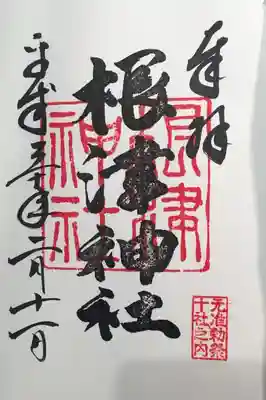 奉拝
元准勅祭
十社之内
根津神社
根津
神社
平成三十年二月十一日